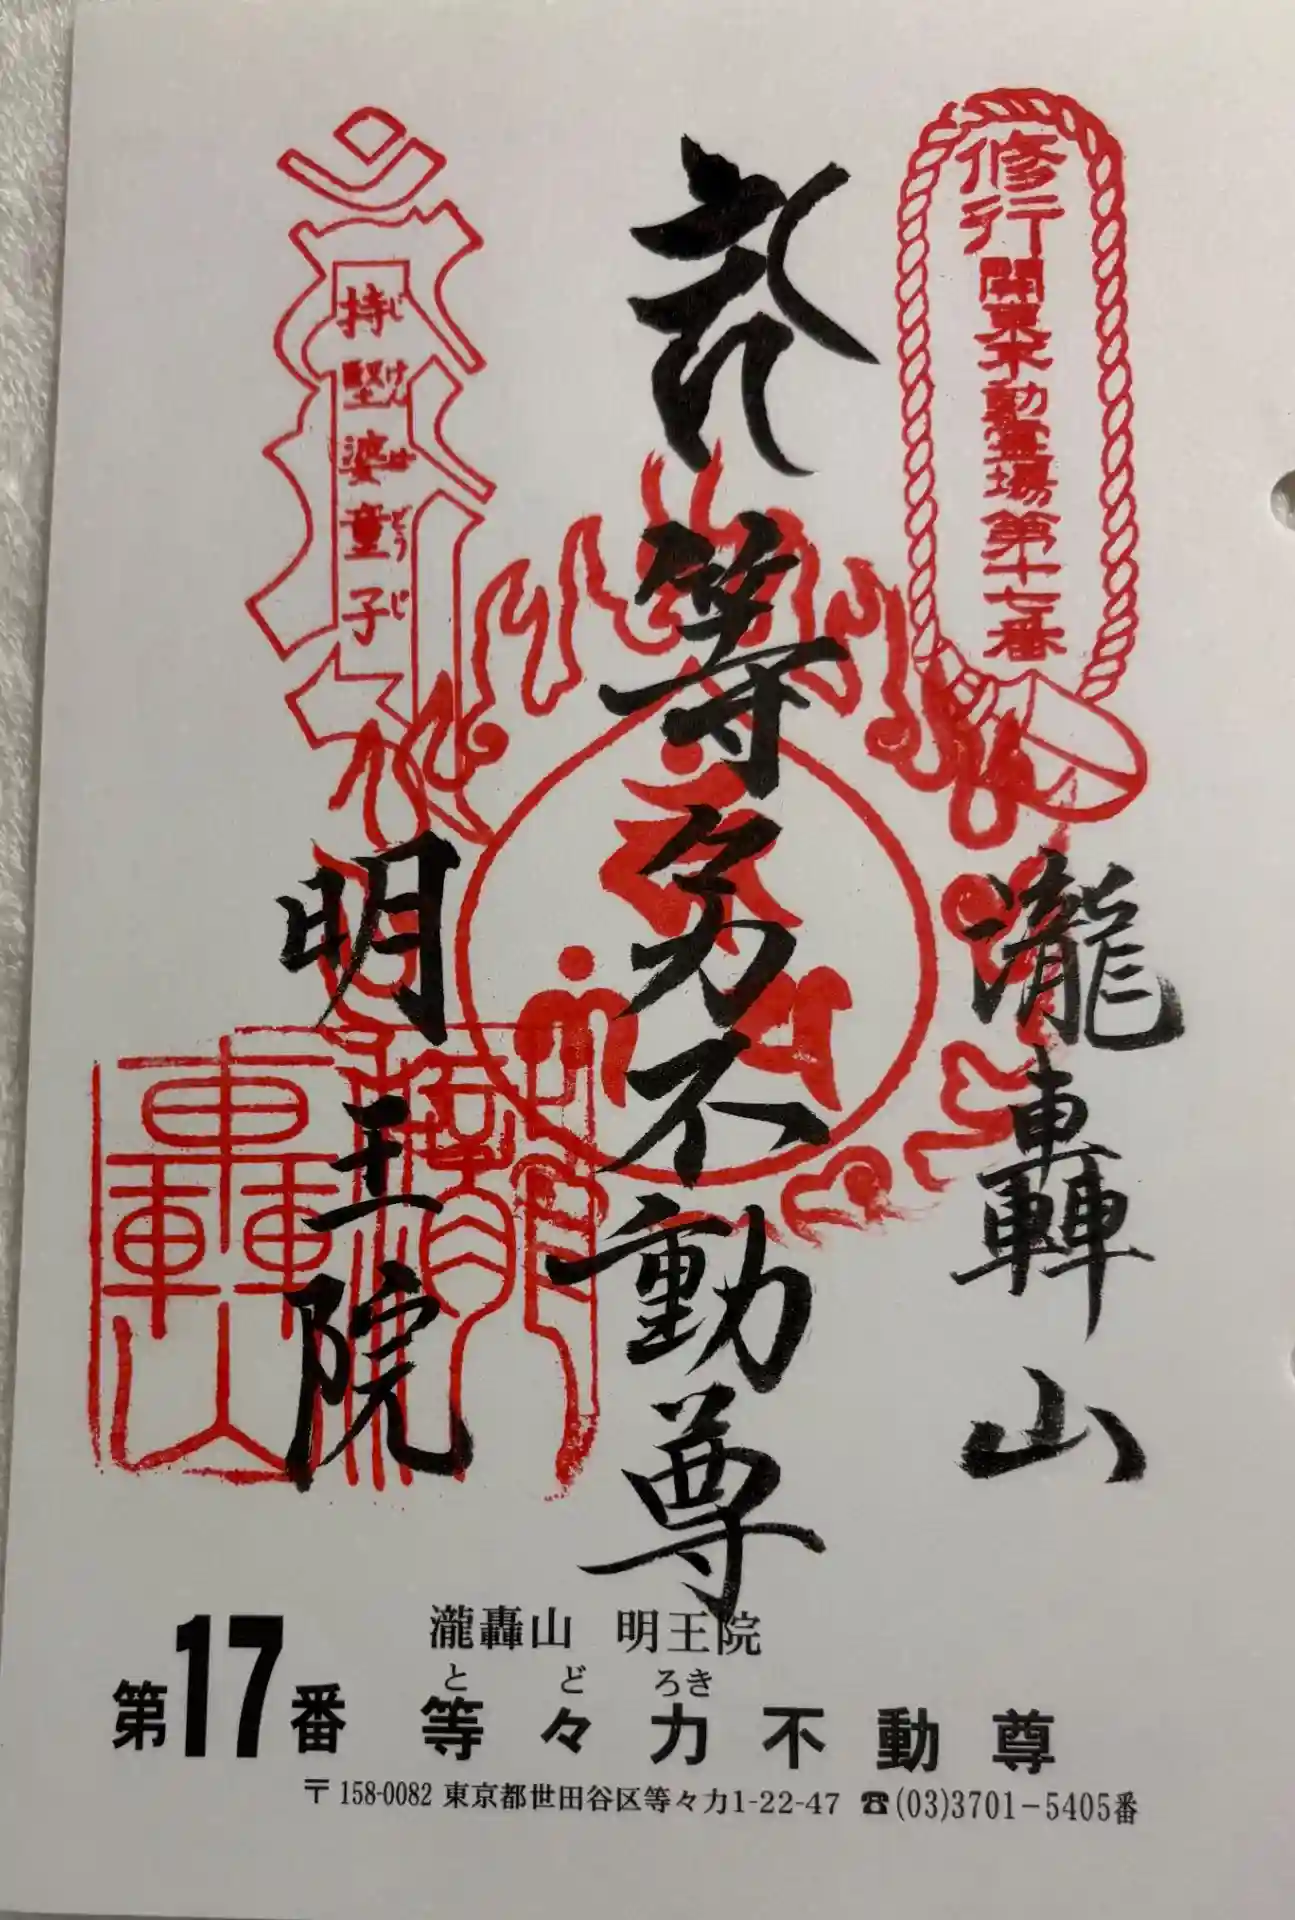 修行
関東不動霊場第十七番
瀧轟山
等々力不動尊
持堅婆童子
じけんばどうじ
明王院
瀧轟山 明王院
とどろき
第17番 等々力不動尊
〒158-0082 東京都世田谷区等々力1-22-47 ☎(03)3701-5405番